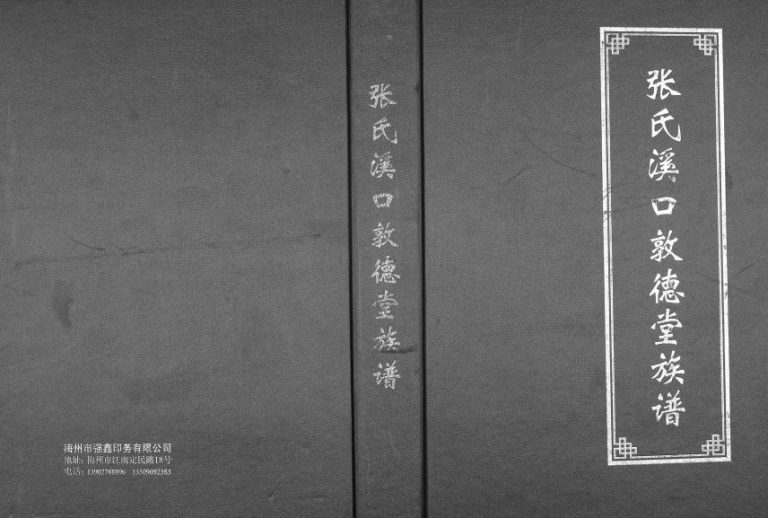 张氏溪口敦德堂族谱
张氏溪口敦德堂族谱
梅州市强鑫印务有限公司
地址：梅州市江南定民路18号
电话：13902788896 13509092383